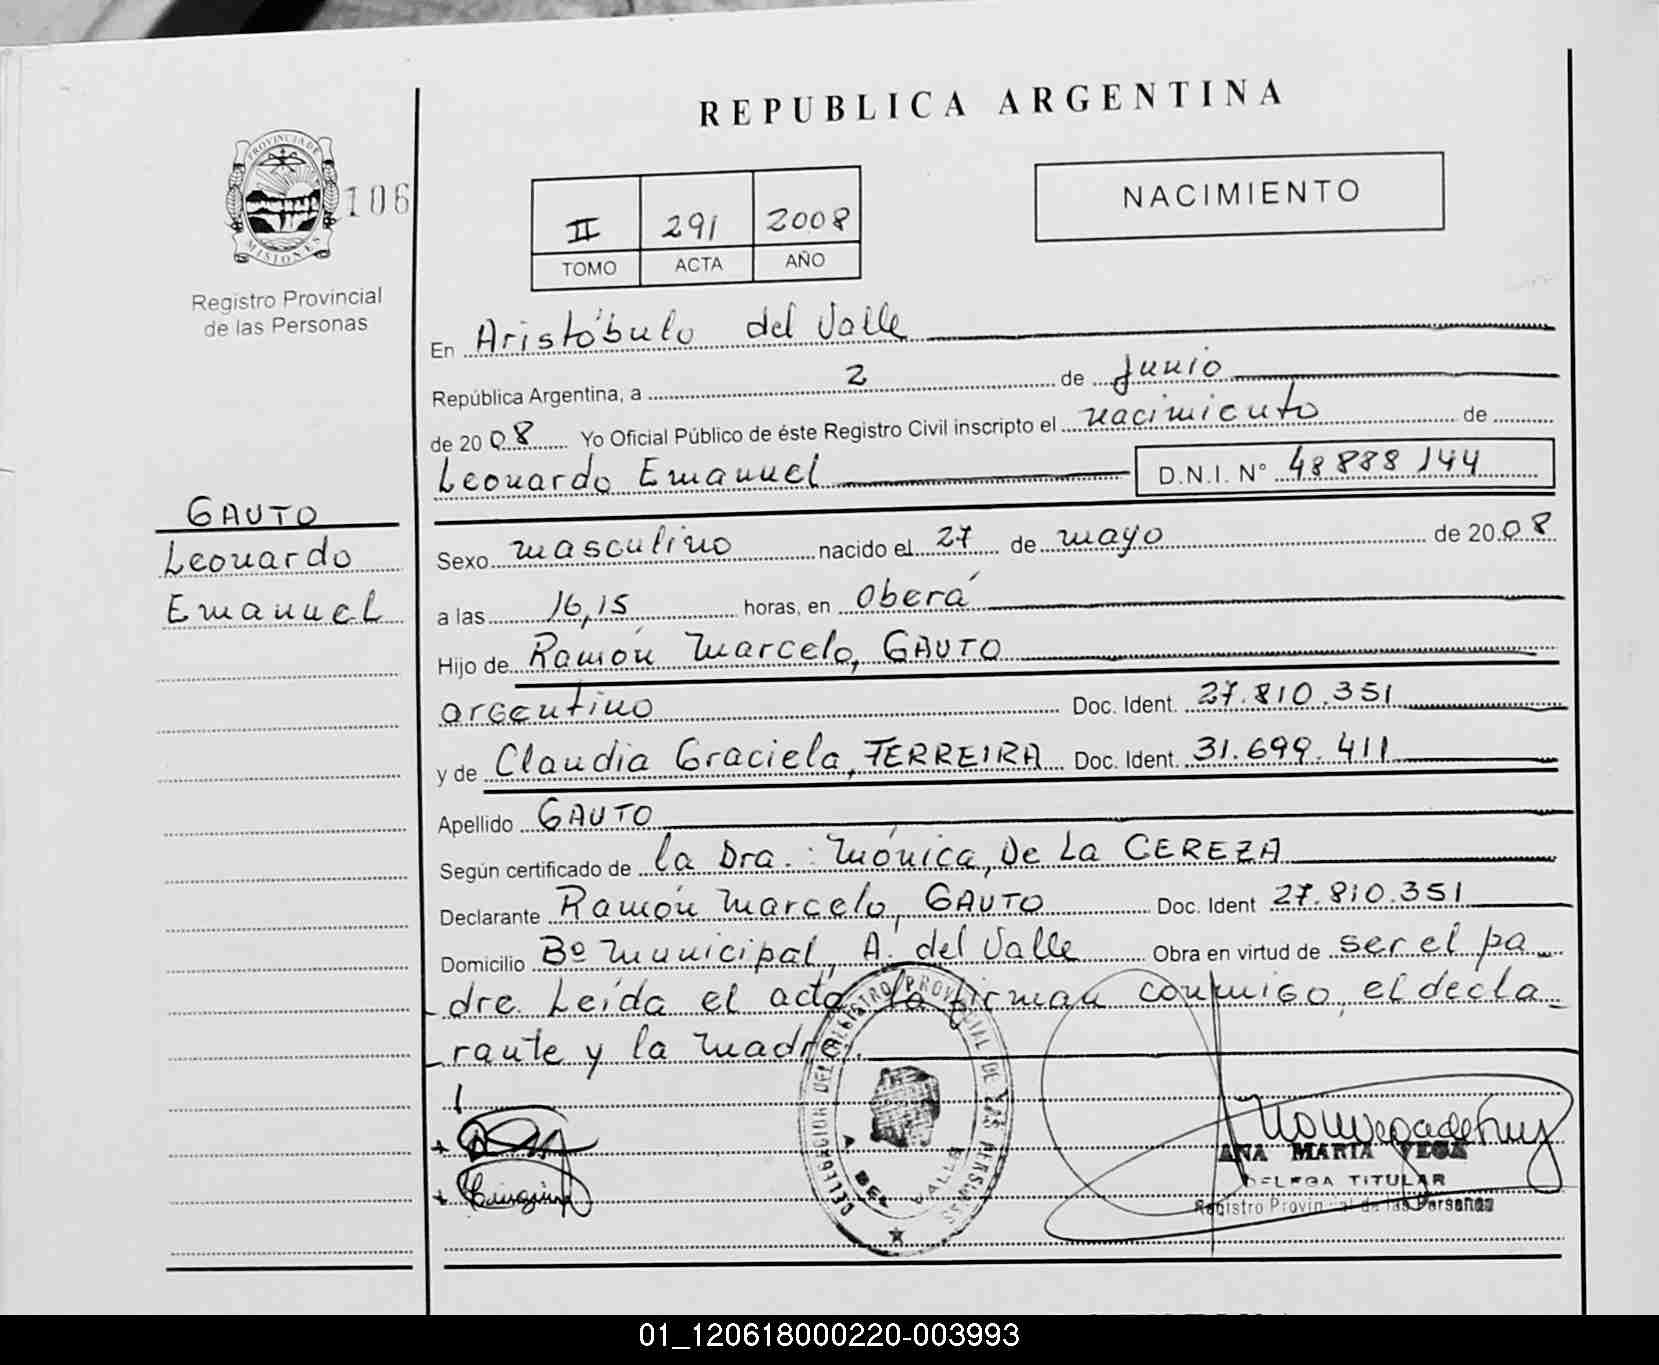 REPUBLICA ARGENTINA
PROVINCIA DE MISIONES
106
Registro Provincial
de las Personas
II 291 2008
TOMO ACTA AÑO
NACIMIENTO
En Aristóbulo del Valle
República Argentina, a 2 de Junio
de 2008 Yo Oficial Público de éste Registro Civil inscripto el nacimiento de
Leonardo Emanuel D.N.I. N° 48888144
GAUTO
Leonardo
Emanuel
Sexo masculino nacido el 27 de mayo de 2008
a las 16,15 horas, en Oberá
Hijo de Ramón Marcelo, GAUTO
argentino Doc. Ident. 27.810.351
y de Claudia Graciela, FERREIRA Doc. Ident. 31.699.411
Apellido GAUTO
Según certificado de la Dra.: Mónica, De La CEREZA
Declarante Ramón Marcelo, GAUTO Doc. Ident 27.810.351
Domicilio Bº Municipal, A. del Valle Obra en virtud de ser el pa_
dre. Leída el acta la firman conmigo, el decla_
rante y la madre.
DELEGACION DEL REGISTRO PROVINCIAL DE LAS PERSONAS
A. DEL VALLE
ANA MARIA VEGA
DELEGA TITULAR
Registro Provincial de las Personas
01_120618000220-003993